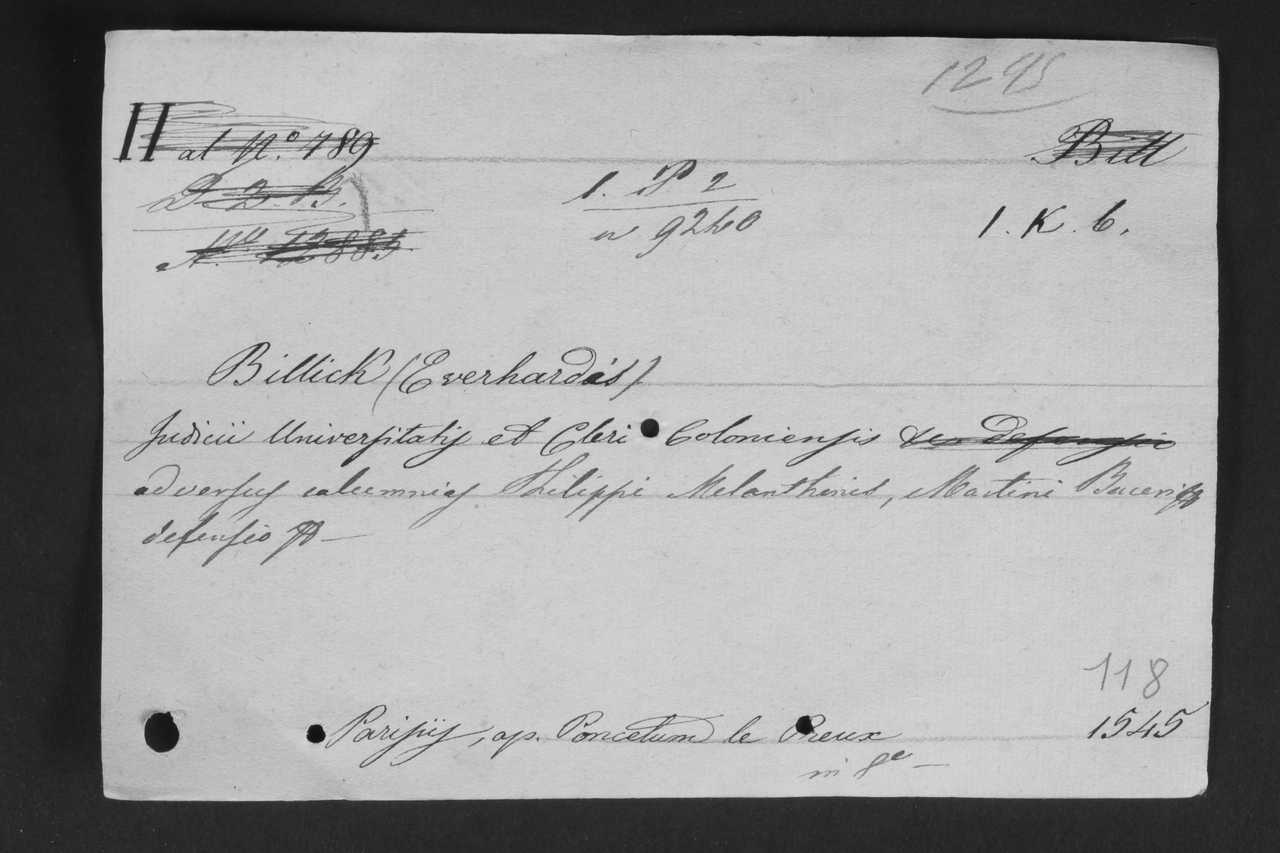 1295
H al No. 789
Bill
D. 2. B.
1. P 2
No 12885
n 9260
1. K. 6.
Billick (Everhardus)
Judicii Universitatis et Cleri Coloniensis
adversus calumnias Philippi Melanthonis, Martini Buceri
defensio
118
Parisiis, ap. Poncetum le Preux
1545
in 8°